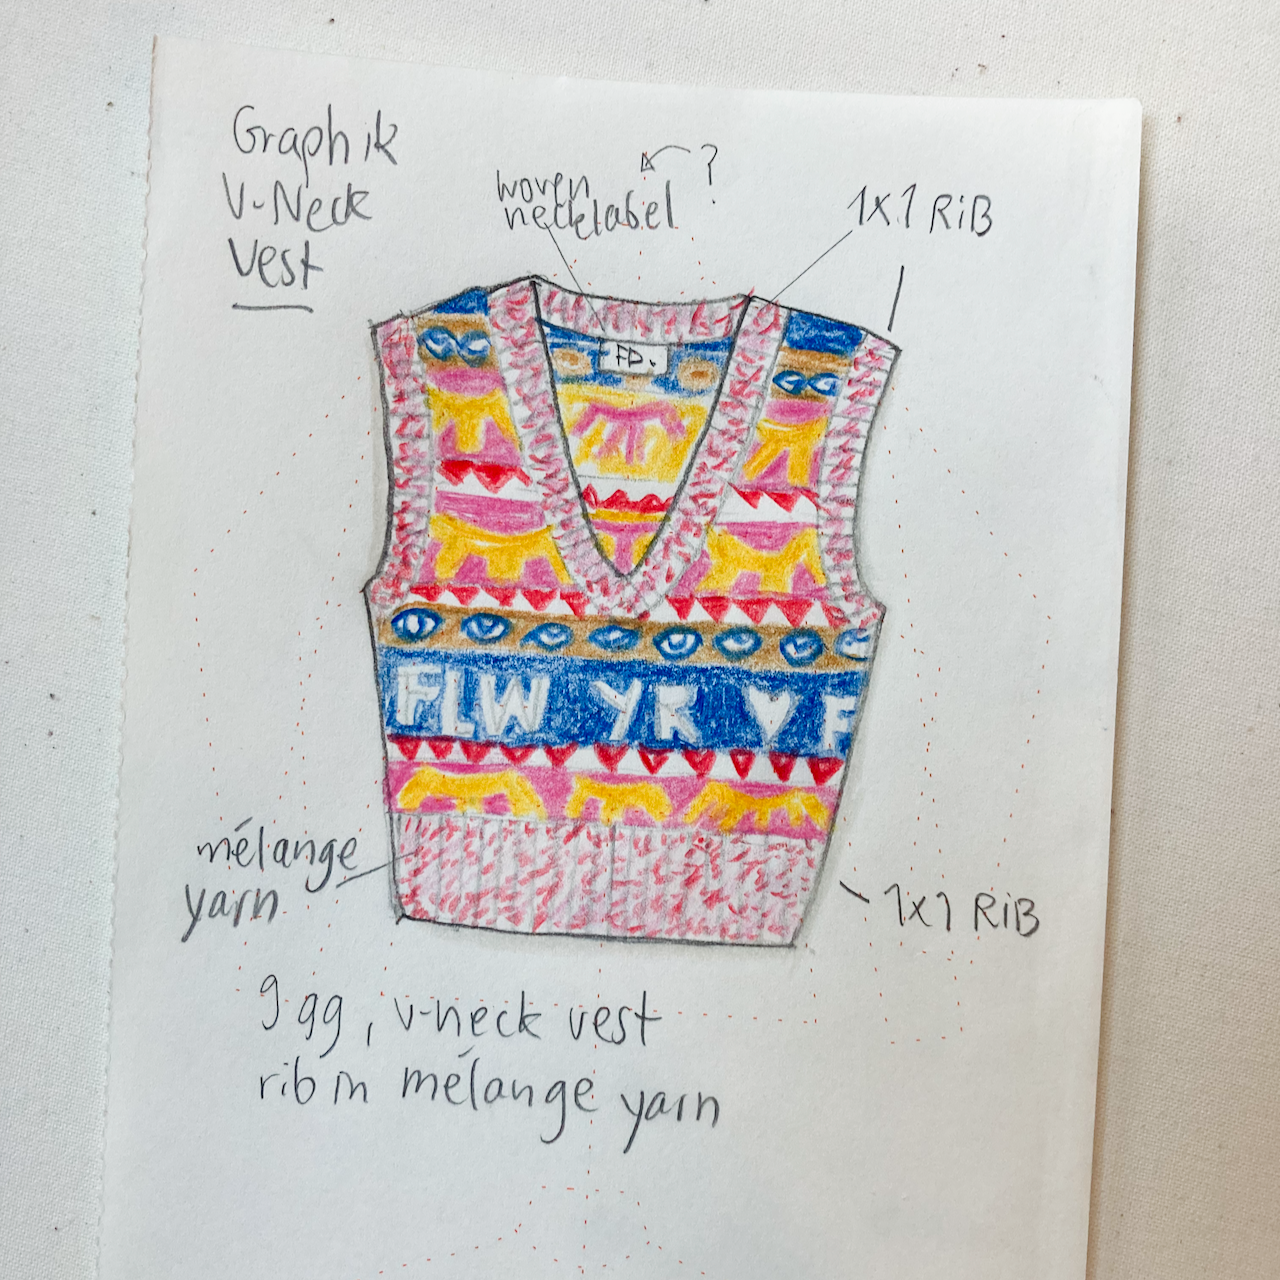 Graphik
V-Neck
Vest
woven
necklabel
?
1x1 RiB
FD.
FLW YR ♥ F
mélange
yarn
1x1 RiB
9 gg, v-neck vest
rib in mélange yarn